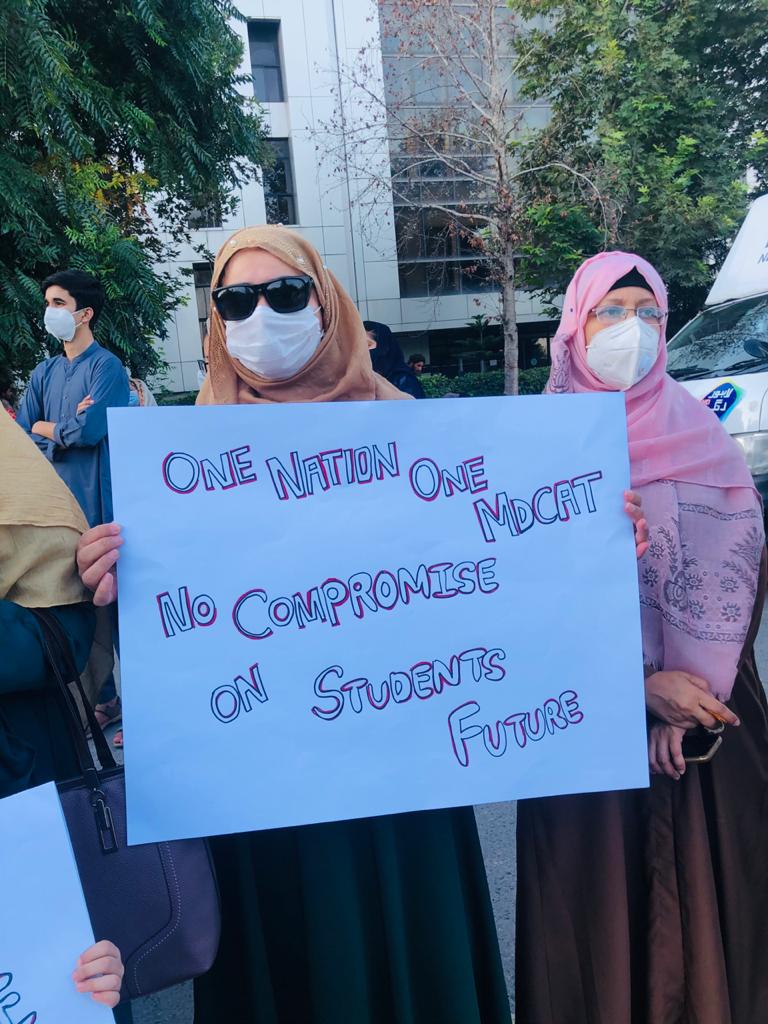 ONE NATION ONE
MDCAT
NO COMPROMISE
ON STUDENTS
FUTURE
لاہور